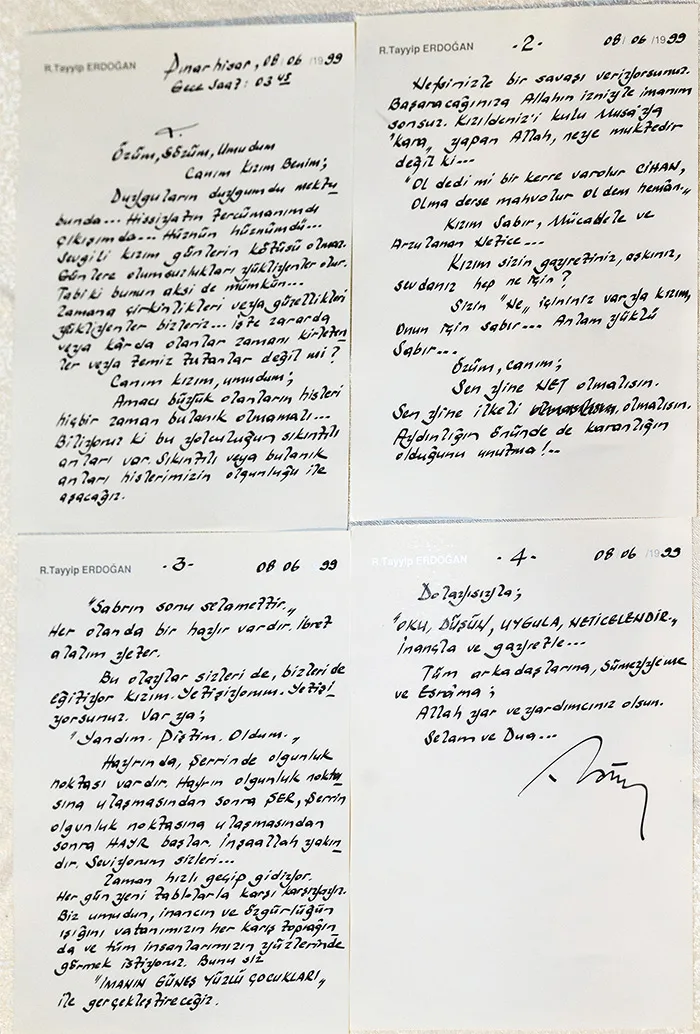 R.Tayyip ERDOĞAN
Pınarhisar, 08/06/1999
Gece Saat: 03 45
Özüm, Sözüm, Umudum
Canım Kızım Benim;
Duyguların duygumdu mektu
bunda... Hissiyatın tercümanımdı
çıkışımda... Hüznün hüznümdü...
Sevgili kızım günlerin kötüsü olmaz.
Günlere olumsuzlukları yükliyenler olur.
Tabi ki bunun aksi de mümkün...
Zamana çirkinlikleri veya güzellikleri
yükliyenler bizleriz... İşte zararda
veya kârda olanlar zamanı kirleten
ler veya temiz tutanlar değil mi?
Canım kızım, umudum;
Amacı büyük olanların hisleri
hiçbir zaman bulanık olmamalı...
Biliyoruz ki bu yolculuğun sıkıntılı
anları var. Sıkıntılı veya bulanık
anları hislerimizin olgunluğu ile
aşacağız.
R.Tayyip ERDOĞAN -2- 08/06/1999
Nefsinizle bir savaşı veriyorsunuz.
Başaracağınıza Allahın izniyle imanım
sonsuz. Kızıldeniz'i kulu Musa'ya
"kara„ yapan Allah, neye muktedir
değil ki...
"Ol dedi mi bir kerre varolur CİHAN,
Olma derse mahvolur ol dem hemân„
Kızım Sabır, Mücadele ve
Arzulanan Netice...
Kızım sizin gayretiniz, aşkınız,
sevdanız hep ne için?
Sizin "Ne„ içininiz varya kızım,
Onun için sabır... Anlam yüklü
Sabır...
Özüm, canım;
Sen yine NET olmalısın.
Sen yine ilkeli olmalısın.
Aydınlığın önünde de karanlığın
olduğunu unutma!..
R.Tayyip ERDOĞAN -3- 08 06 99
"Sabrın sonu selamettir.„
Her olanda bir hayır vardır. İbret
alalım yeter.
Bu olaylar sizleri de, bizleri de
eğitiyor kızım. Yetişiyorum. Yetişi
yorsunuz. Var ya;
"Yandım. Piştim. Oldum.„
Hayrında, Şerrinde olgunluk
noktası vardır. Hayrın olgunluk nokta
sına ulaşmasından sonra ŞER, Şerrin
olgunluk noktasına ulaşmasından
sonra HAYR başlar. İnşaallah yakın
dır. Seviyorum sizleri...
Zaman hızlı geçip gidiyor.
Her gün yeni tablolarla karşı karşıyayız.
Biz umudun, inancın ve özgürlüğün
ışığını vatanımızın her karış toprağın
da ve tüm insanlarımızın yüzlerinde
görmek istiyoruz. Bunu siz
"İMANIN GÜNEŞ YÜZLÜ ÇOCUKLARI„
ile gerçekleştireceğiz.
R.Tayyip ERDOĞAN -4- 08 06 1999
Dolayısıyla;
"OKU, DÜŞÜN, UYGULA, NETİCELENDİR.„
İnançla ve gayretle...
Tüm arkadaşlarına, Sümeyyeme
ve Esrâma;
Allah yar ve yardımcınız olsun.
Selam ve Dua...